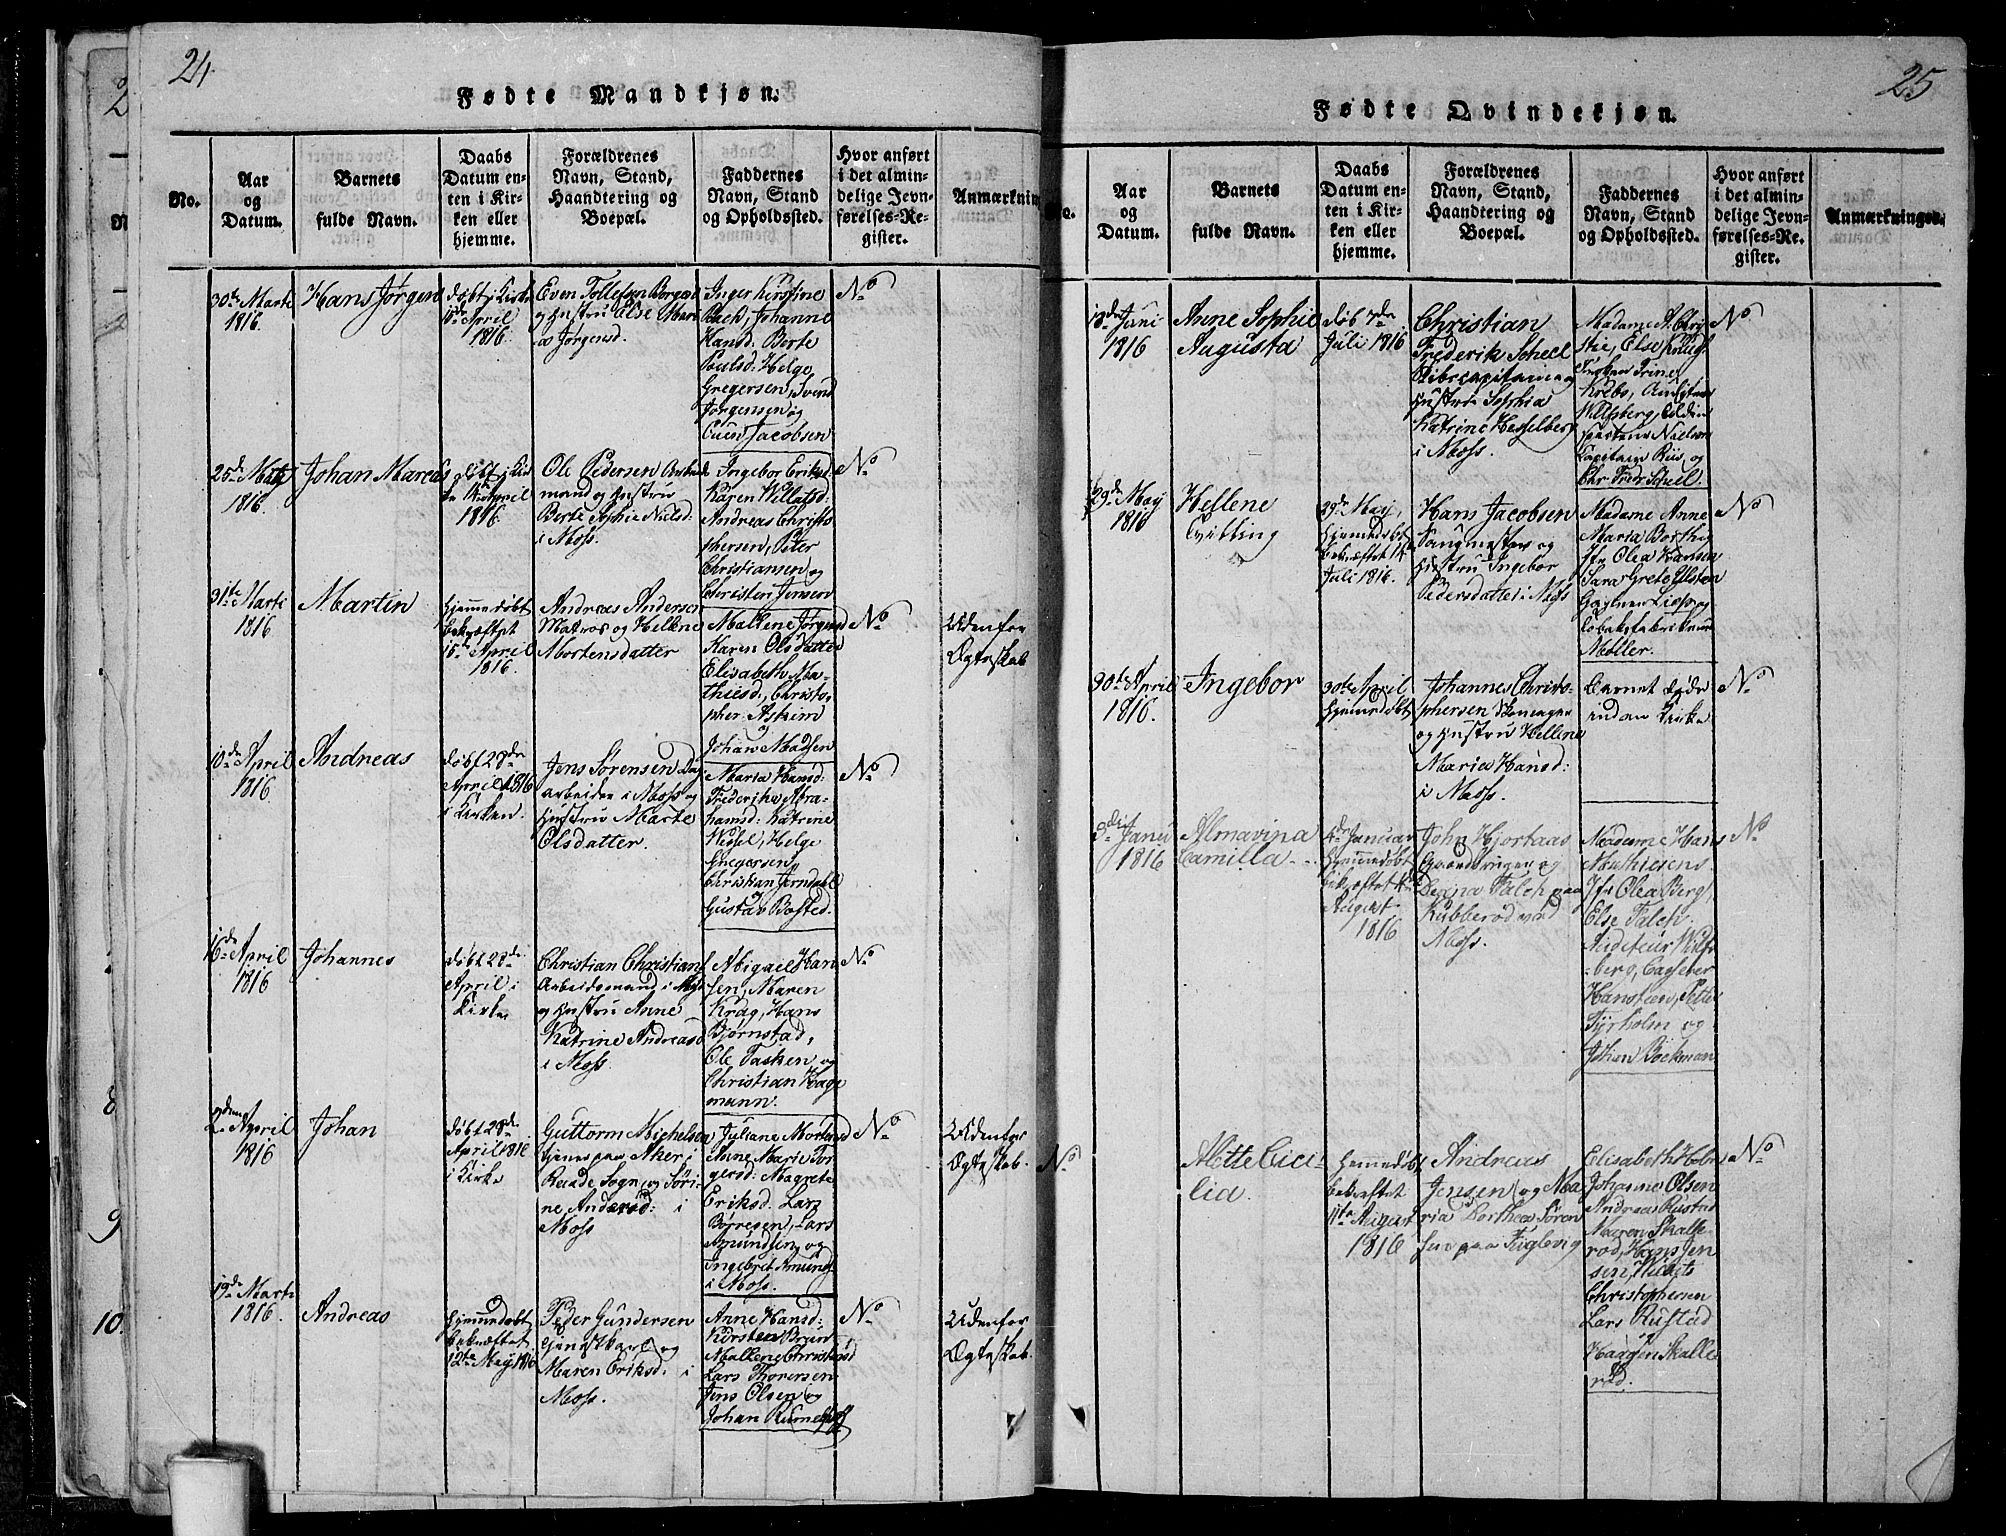 24
Fødte Mandkjøn.
No.
Aar
og
Datum.
Barnets
fulde Navn.
Daabs
Datum en-
ten i Kir-
ken eller
hjemme.
Forældrenes
Navn, Stand,
Haandtering og
Boepæl.
Faddernes
Navn, Stand
og Opholdssted.
Hvor anført
i det almin-
delige Jevn-
førelses-Re-
gister.
Anmærkning
30te Marts
1816.
Hans Jørgen
døbt i Kirke
April
1816.
Even Tollefsen
og Hustru Else Mari
a Jørgensd.
Inger Kirstine
Back, Johanne
Hansd: Berte
Poulsd: Helge
Gregersen, Svend
Jørgensen og
Even Jacobsen
No
25de
1816.
Johan Marcus
døbt i Kir
April
1816.
Ole Pedersen
mand og Hustru
Berte Sophie Nielsd:
i Moss.
Ingebor Eriksd:
Karen Willatsd:
Andreas Christo
phersen, Peter
Christiansen og
Christen Jensen
No
31te Marts
1816
Martin
hjemmedøbt
bekræftet
15de April
1816.
Andreas Andersen
Matros og Hellene
Mortensdatter
Mallene Jørgensd
Karen Olsdatter
Elisabeth Ma-
thiesd: Christo-
pher Askim
og
Johan Madsen
No
Udenfor
Ægteskab
10de April
1816
Andreas
døbt 28de
April 1816
i Kirken.
Jens Sørensen Dag
arbeider i Moss og
Hustru Marte
Olsdatter.
Maria Hansd:
Frederike Abra-
hamsd: Katrine
Wessel, Helge
Gregersen,
Christian Jerndahl
Gustav Bosted.
No
16de April
1816
Johannes
døbt 28de
April i
Kirke
Christian Christians
Arbeidsmand i Moss
og Hustru Anne
Katrine Andreasd
i Moss.
Abigael Han
sen, Maren
Krag, Hans
Bjørnstad,
Ole Tasken og
Christian Hage
mann.
No
2den April
1816
Johan
døbt 28de
April 1816
i Kirke
Guttorm Michelsen
tjenes paa Aker i
Raade Sogn og Søri-
ne Andersd: i
Moss
Juliane Mortensd
Anne Marie Tor
gersd: Magrete
Eriksd. Lars
Børresen, Lars
Amundsen, og
Ingebrit Amunds
i Moss.
No
Udenfor
Ægteskab.
19de Marts
1816.
Andreas
hjemmedøbt
bekræftet
12te May 1816
Peder Gundersen
tjenestkarl og
Maren Eriksd: i
Moss.
Anne Hansd:
Kirsten Brun
Mallene Christensd
Lars Thoresen
Jens Olsen og
Johan
No
Udenfor
Ægteskab.
8
9
10.
25
Fødte Qvindekjøn.
No.
Aar
og
Datum.
Barnets
fulde Navn.
Daabs
Datum en-
ten i Kir-
ken eller
hjemme.
Forældrenes
Navn, Stand,
Haandtering og
Boepæl.
Faddernes
Navn, Stand
og Opholdssted.
Hvor anført
i det almin-
delige Jevn-
førelses-Re-
gister.
Anmærkninger.
18de Juni
1816
Anne Sophie
Augusta
døb 7de
Juli 1816
Christian
Frederik Scheel
capitaine og
Hustrue Sophia
Katrine Hesselberg
i Moss.
Madame A: Chri
stie, Else
Frøken Trine
Krebs, Amtgtm
Wulfsberg,
Nielsen
Capitain Riis, og
Chr: Fredr Scheel.
No
29de May
1816
Hellene
29de May,
hjemmedøbt
bekræftet 14de
Juli 1816.
Hans Jacobsen
Saugmester og
Hustru Ingebor
Pedersdatter i Moss
Madame Anne
Maria Berthe
Jfr Olea Hansen
Sara Grete
og
Tobaksfabrikeur
Møller.
No
30te April
1816.
Ingebor
30te April
hjemmedøbt
Johannes Christo-
phersen
og Hustru Hellene
Maria Hansd:
i Moss.
Barnet døde
inden Kirke
No
3die Janu
1816
Almavina
Camilla
4de Januar
hjemmedøbt
bekræftet 4de
August
1816
John Hjortaas
Gaardbruger og
Falch paa
Kubberød ved
Moss.
Madame Hans
Mathiesens
Jfr Olea Berg,
Else Falch.
Auditeur Wulfs
berg,
Hansteen, Petter
Tyrholm og
Johan Bockman
No
No
Mette Cici-
lia.
hjemmedøbt
bekræftet
11te August
1816
Andreas
Jensen og Ma
ria Dorthea Søren
sen paa Fuglevig
Elisabeth Holm
Johanne Olsen
Andrea Rustad
Maren Skalle
rød, Hans Jen
sen,
Christophersen
Lars Rustad
og
Skalle
rød.
No